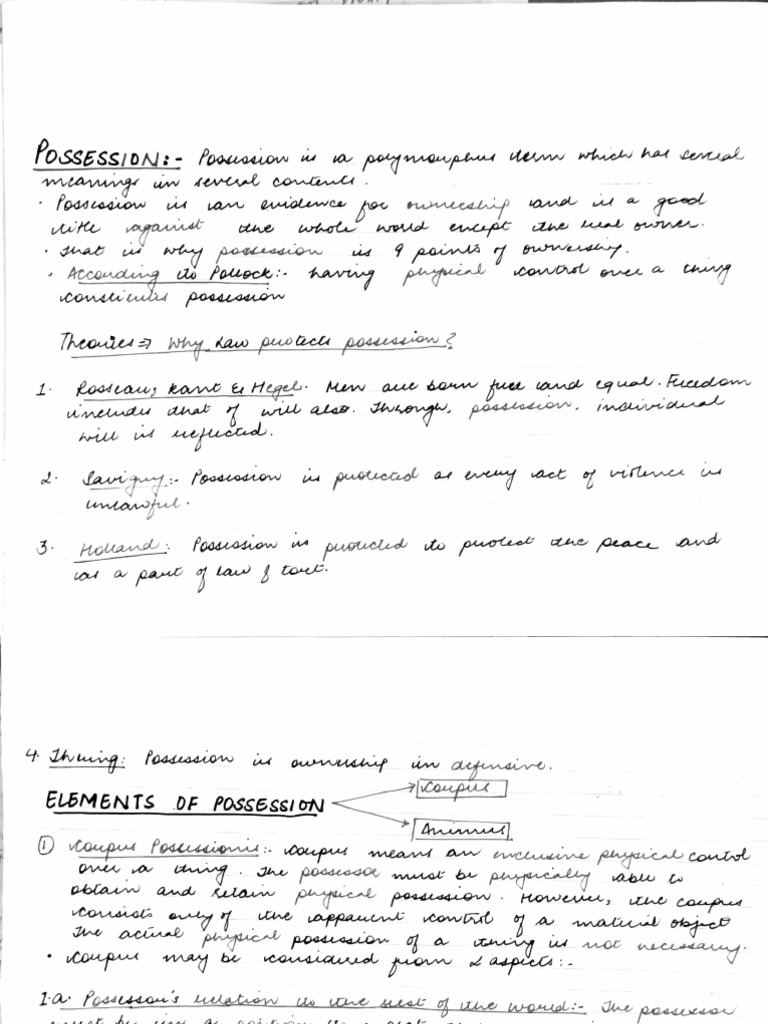 POSSESSION:- Possession is a polymorphus term which has several
meanings in several contents.
• Possession is an evidence for ownership and is a good
title against the whole world except the real owner.
• That is why possession is 9 points of ownership.
• According to Pollock:- having physical control over a thing
constitutes possession
Theories⇒ Why Law protects possession?
1. Rosseau, Kant & Hegel. Men are born free and equal. Freedom
includes that of will also. Through, possession, individual
will is reflected.
2. Savigny:- Possession is protected as every act of violence is
unlawful.
3. Holland: Possession is protected to protect the peace and
as a part of law of tort.
4. Ihring: Possession is ownership in defensive.
Corpus
ELEMENTS OF POSSESSION
Animus
① Corpus Possessionis:- Corpus means an exclusive physical control
over a thing. The possessor must be physically able to
obtain and retain physical possession. However, the corpus
consists only of the apparent control of a material object
The actual physical possession of a thing is not necessary.
• Corpus may be considered from 2 aspects:-
1.a. Possessor's relation to the rest of the world:- The possessor